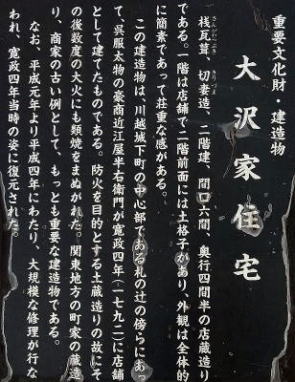 重要文化財・建造物
大沢家住宅
さんがわらぶき きりづま
桟瓦葺、切妻造、二階建、間口六間、奥行四間半の店蔵造り
である。一階は店舗で二階前面には土格子があり、外観は全体的
に簡素であって荘重な感がある。
この建造物は、川越城下町の中心部である札の辻の傍らにあっ
て、呉服太物の豪商近江屋半右衛門が寛政四年(一七九二)に店舗
として建てたものである。防火を目的とする土蔵造りの故にそ
の後数度の大火にも類焼をまぬがれた。関東地方の町家の蔵造
り、商家の古い例として、もっとも重要な建造物である。
なお、平成元年より平成四年にわたり、大規模な修理が行な
われ、寛政四年当時の姿に復元された。